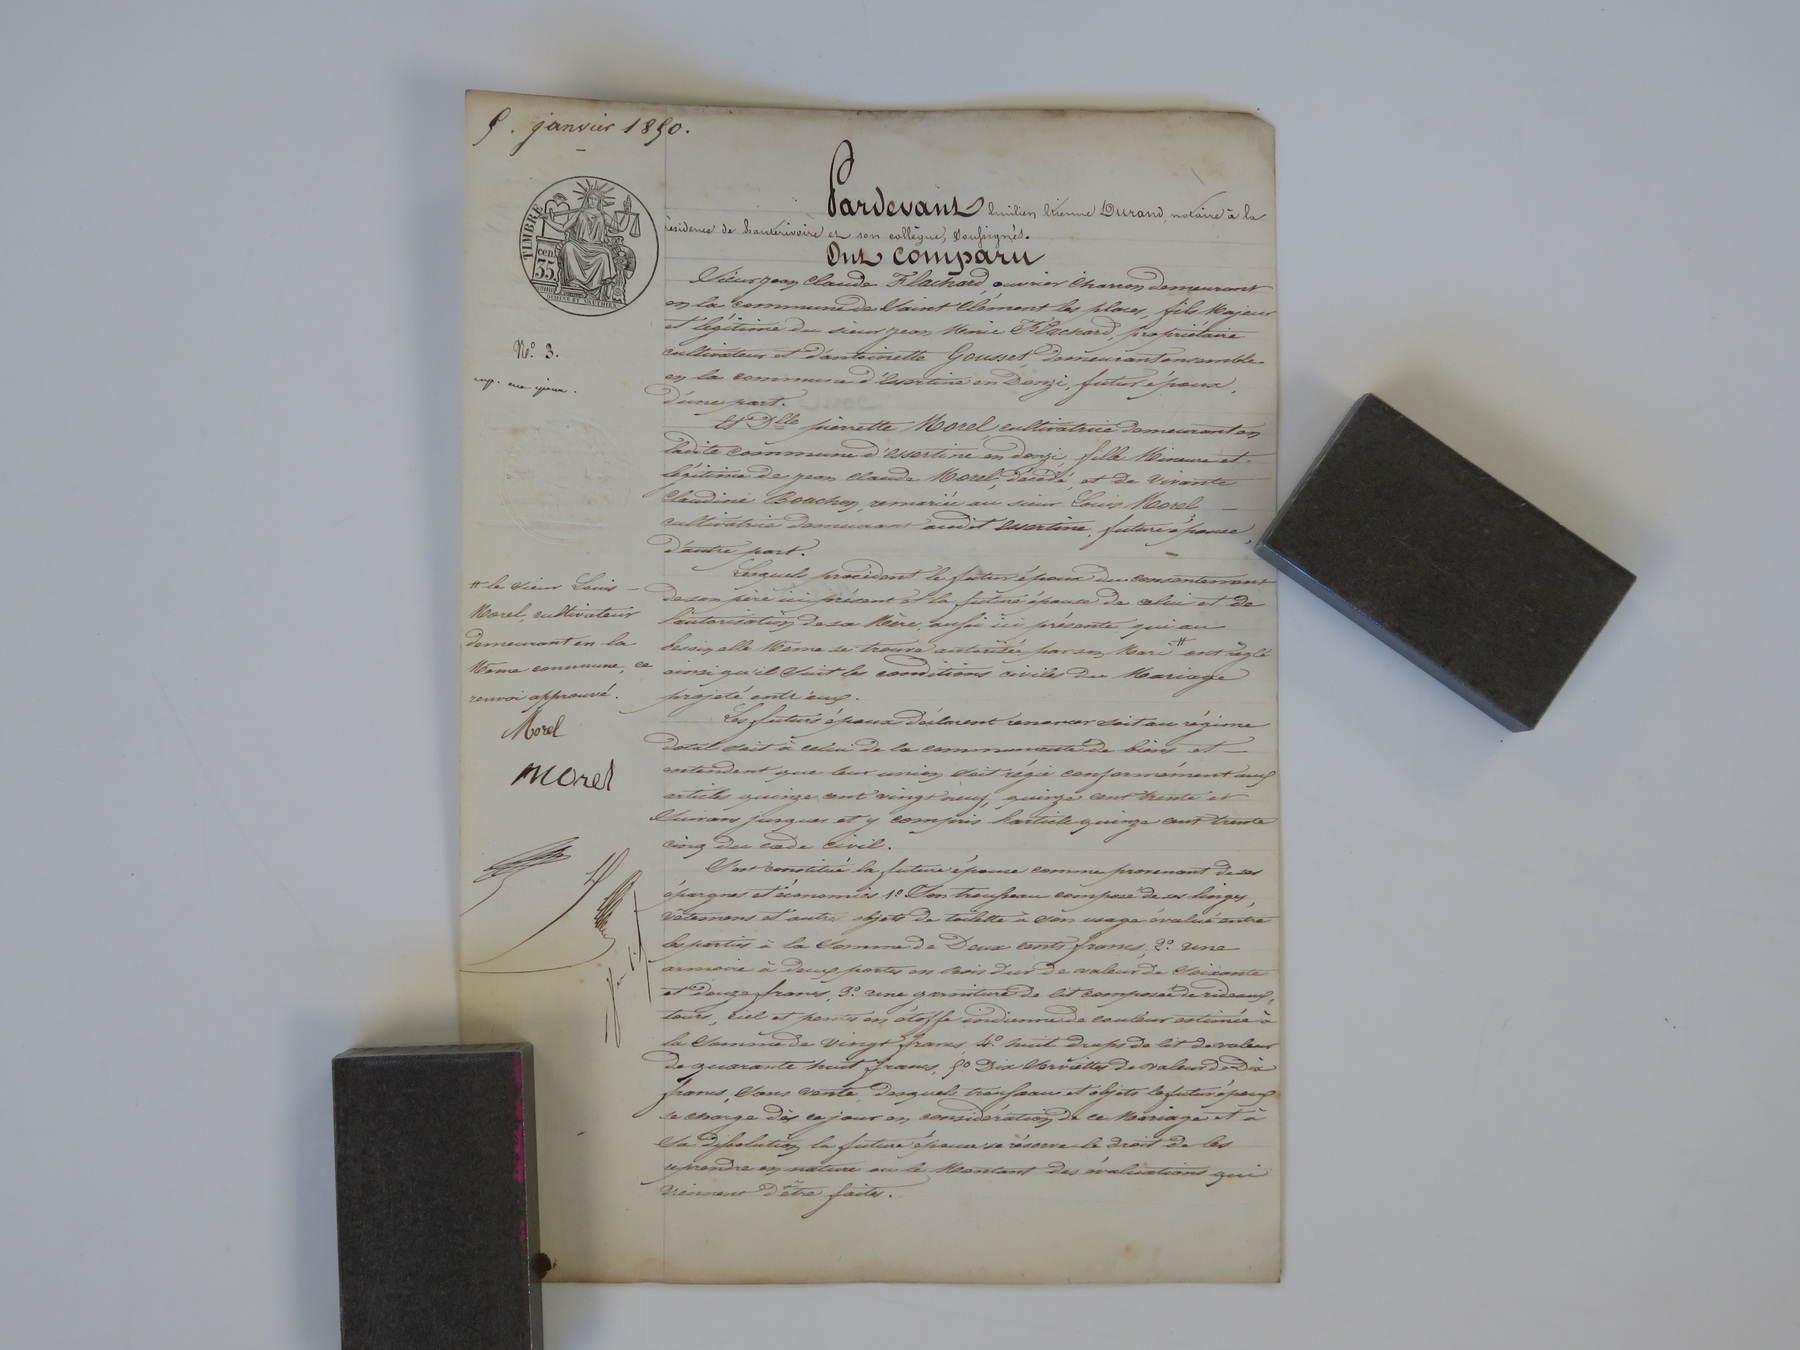 5. janvier 1850.
Pardevant Emilien Etienne Durand, notaire à la
résidence de hauterivoire et son collègue, soussignés.
Ont comparu
TIMBRE
cen.
35
N° 3.
exp. aux époux.
Sieur jean Claude Flachard, ouvrier charron demeurant
en la commune de Saint Clément les places, fils Majeur
et légitime du sieur jean Marie Flachard, propriétaire
cultivateur et d'antoinette Gousset, demeurant ensemble
en la commune d'essertine en Donzi, futur époux,
d'une part.
Et Dlle pierrette Morel, cultivatrice demeurant en
ladite commune d'essertine en donzi, fille Mineure et
légitime de jean claude Morel, décédé, et de vivante
Claudine Bouchon, remariée au sieur Louis Morel
cultivatrice demeurant audit essertine, future épouse,
d'autre part.
Lesquels procédant le futur époux du consentement
de son père ici présent et la future épouse de celui et de
l'autorisation de sa Mère, aussi ici présente, qui au
besoin elle Même se trouve autorisée par son Mari # ont réglé
ainsi qu'il suit les conditions civiles du Mariage
projeté entr'eux.
# le sieur Louis
Morel, cultivateur
demeurant en la
Même commune, ce
renvoi approuvé.
Morel
Morel
Les futurs époux déclarent renoncer soit au régime
dotal soit à celui de la communauté de biens et
entendent que leur union soit régie conformément aux
articles quinze cent vingt neuf, quinze cent trente et
suivans jusques et y compris l'article quinze cent trente
cinq du code civil.
S'est constituée la future épouse comme provenant de ses
épargnes et économies 1° Son trousseau composé de ses linges,
vêtemens et autres objets de toilette à son usage évalué entre
les parties à la Somme de Deux cents francs, 2° une
armoire à deux portes en bois dur de valeur de Soixante
et douze francs, 3° une garniture de lit composée de rideaux,
tours, ciel et pentes en étoffe indienne de couleur estimée à
la Somme de vingt francs 4° huit draps de lit de valeur
de quarante huit francs, 5° Dix Serviettes de valeur de Dix
francs, Sans vente desquels trousseau et objets le futur époux
se charge dès ce jour en considération de ce Mariage et à
Sa dissolution la future épouse se réserve le droit de les
reprendre en nature ou le Montant des évaluations qui
viennent d'être faites.